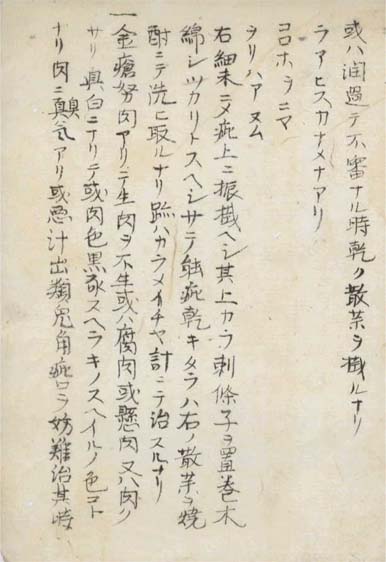 或ハ潤過テ不審ナル時乾ク散薬ヲ掛ルナリ
ラアヒスカナメナアリ
コロホラニマ
ヲリハアヌム
右細末ニメ疵上ニ振掛ヘシ其上カラ刺條子ヲ置巻木
綿シツカリトスヘシサテ能疵乾キタラハ右ノ散薬ヲ焼
酎ニテ洗ヒ取ルナリ跡ハカラメイチヤ計ニテ治スルナリ
一金瘡努肉アリテ生肉ヲ不生或ハ腐肉或懸肉又ハ肉ク
サリ真白ニナリテ或肉色黒スヘラキノスヘイルノ色コト
ナリ肉ニ臭気アリ或悪汁出類兎角疵口ヲ妨難治其時